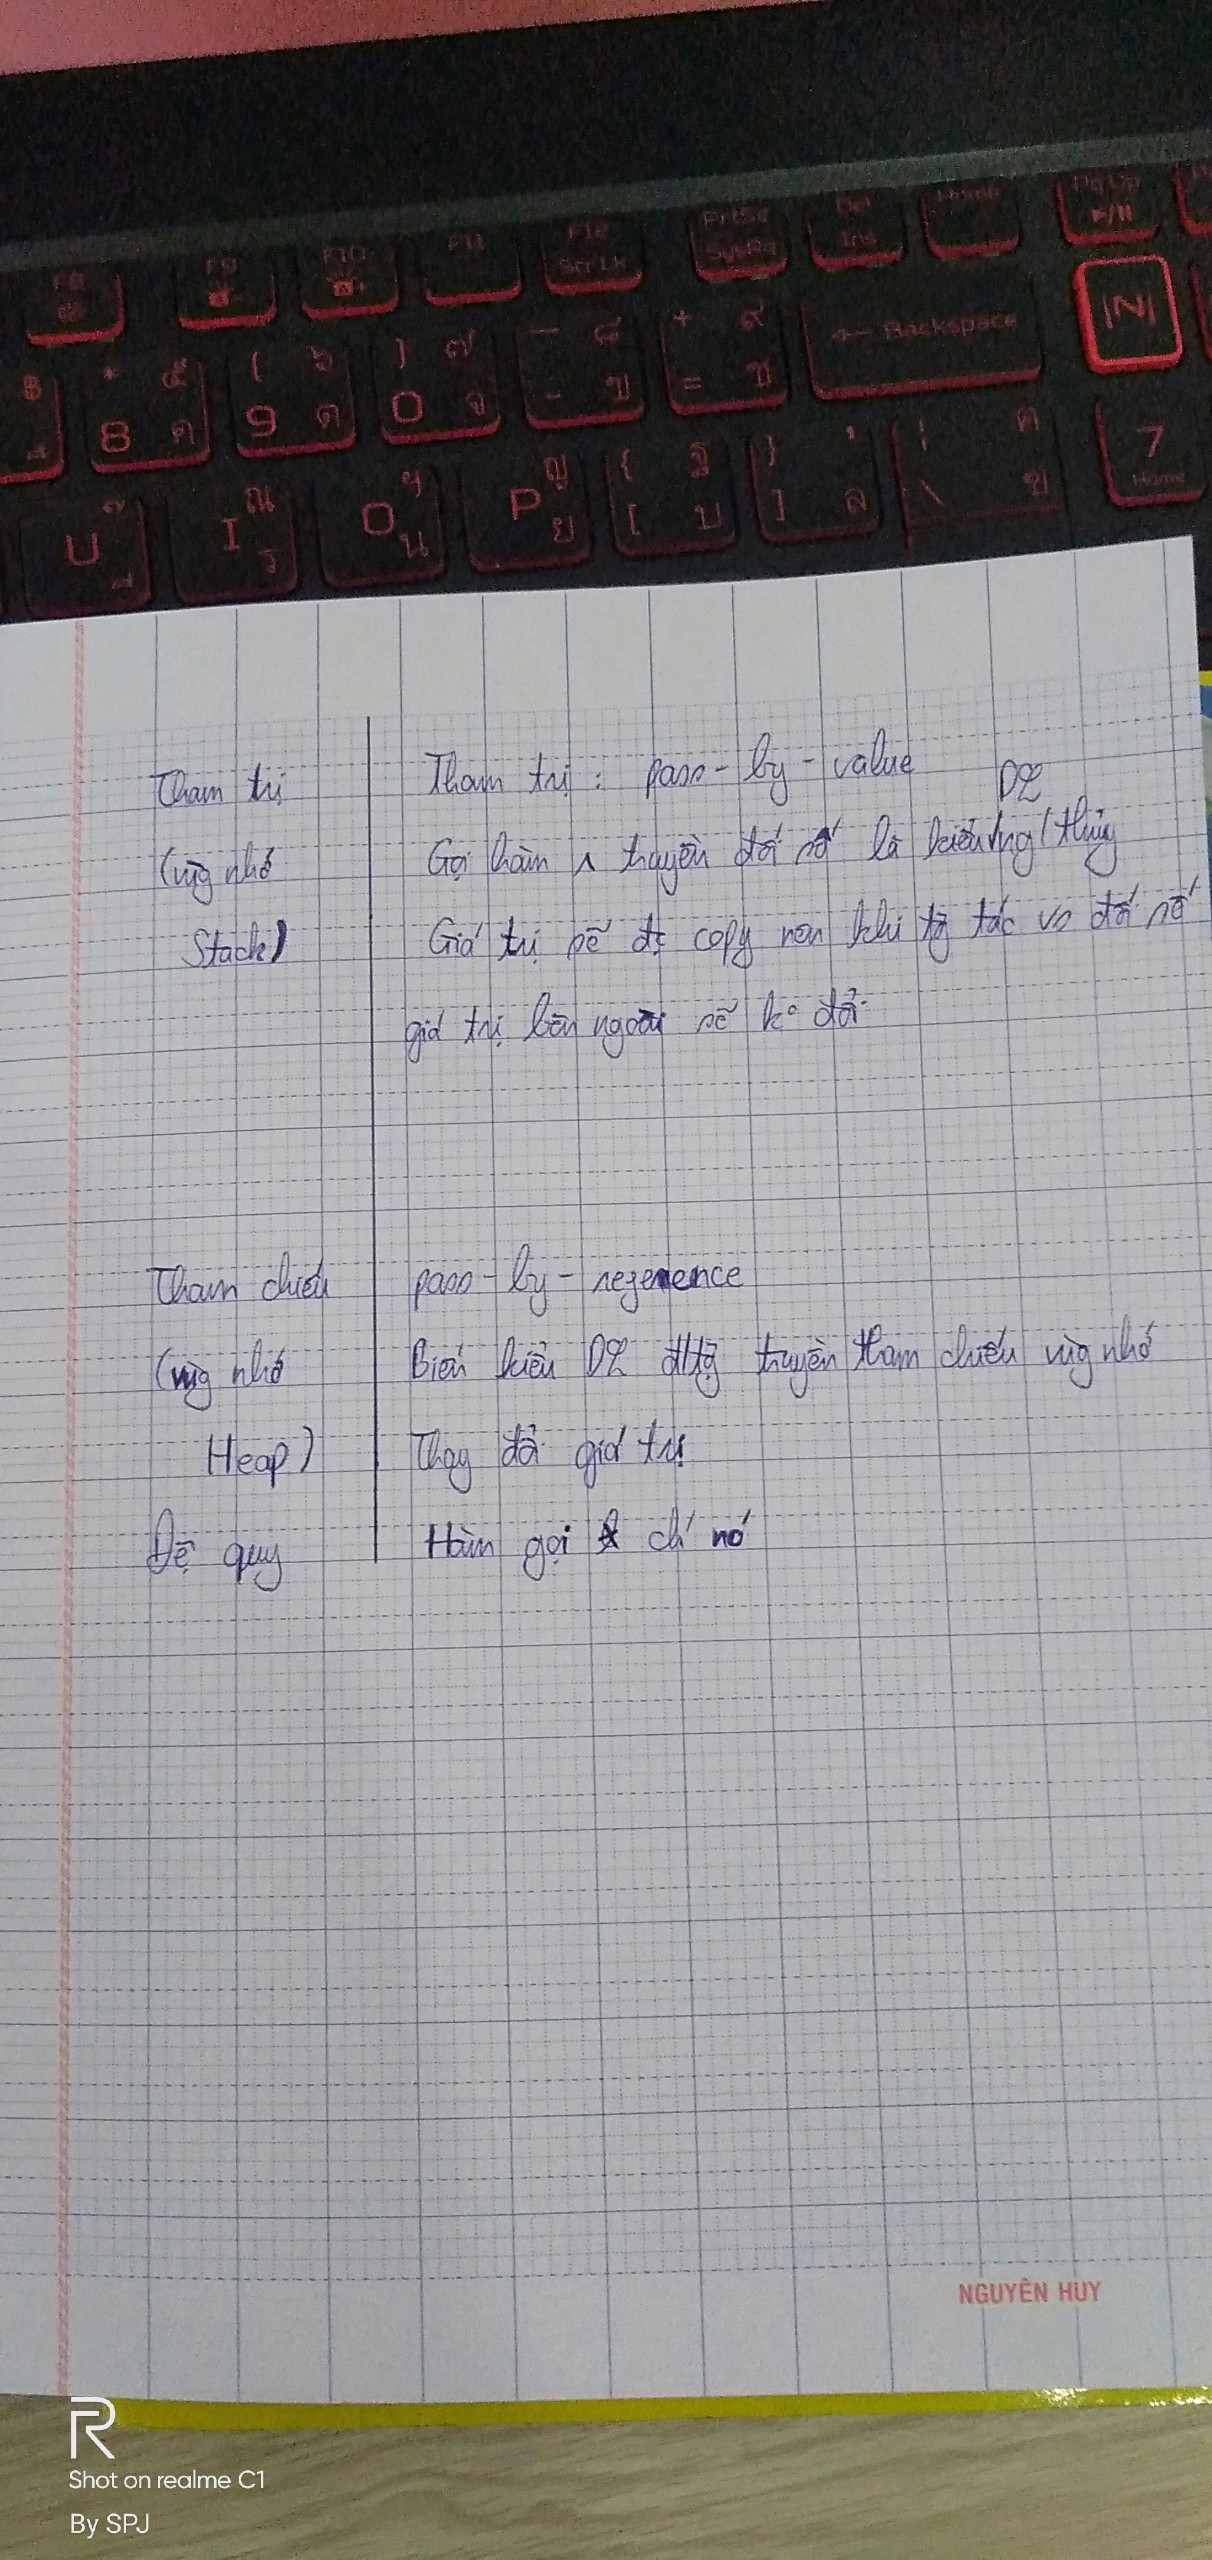 F9
F10
F11
F12
Scr Lk
PrtSc
SysRq
Del
Ins
PgUp
* ๕
8 ค
( ๖
9 ต
) ๗
0 จ
_ ๘
- ข
+ ๙
= ช
← Backspace
N
U
I ณ
ร
O ฯ
น
P ญ
ย
{ ฐ
[ บ
} ,
] ล
\ ฃ
7
Home
Tham trị
(vùg nhớ
Stack)
Tham trị : pass-by-value
DL
Gọi hàm truyền đối số là kiểu ng/thủy
Giá trị sẽ đc copy nên khi tg tác vs đối số
giá trị bên ngoài sẽ ko đổi
Tham chiếu
(vùg nhớ
Heap)
pass-by-regerence
Biến kiểu DL đ/tg truyền tham chiếu vùg nhớ
Thay đổi giá trị
Đệ quy
Hàm gọi chí nó
NGUYÊN HUY
R
Shot on realme C1
By SPJ